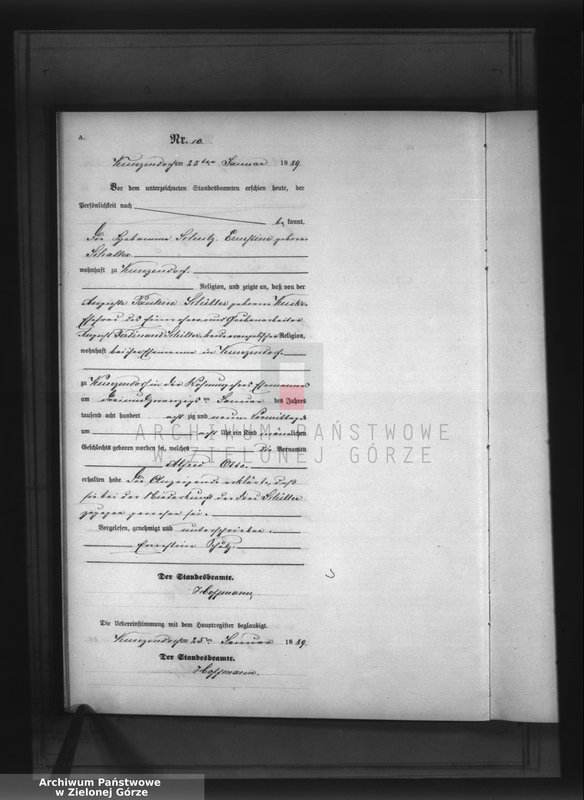 A.
Nr. 10.
Kunzendorf am 25ten Januar 1889
Vor dem unterzeichneten Standesbeamten erschien heute, der
Persönlichkeit nach
bekannt,
die Hebamme Scholz, Ernestine geborene
Schalke
wohnhaft zu Kunzendorf
Religion, und zeigte an, daß von der
Auguste Pauline Schiller geborene
Ehefrau des und Grubenarbeiter
August Ferdinand Schiller, beide evangelischer Religion,
wohnhaft bei ihrem Ehemanne in Kunzendorf
zu Kunzendorf in der Wohnung ihres Ehemannes
am dreiundzwanzigsten Januar des Jahres
tausend acht hundert achtzig und neun Vormittags
um acht Uhr ein Kind männlichen
Geschlechts geboren worden sei, welches die Vornamen
Alfred Otto
erhalten habe. Die Anzeigende erklärte, daß
sie bei der Niederkunft der Frau Schiller
zugegen gewesen sei.
Vorgelesen, genehmigt und unterschrieben.
Ernestine
Der Standesbeamte.
Hoffmann
Die Uebereinstimmung mit dem Hauptregister beglaubigt.
Kunzendorf am 25ten Januar 1889.
Der Standesbeamte.
Hoffmann.
ARCHIWUM PAŃSTWOWE
W ZIELONEJ GÓRZE
Archiwum Państwowe
w Zielonej Górze